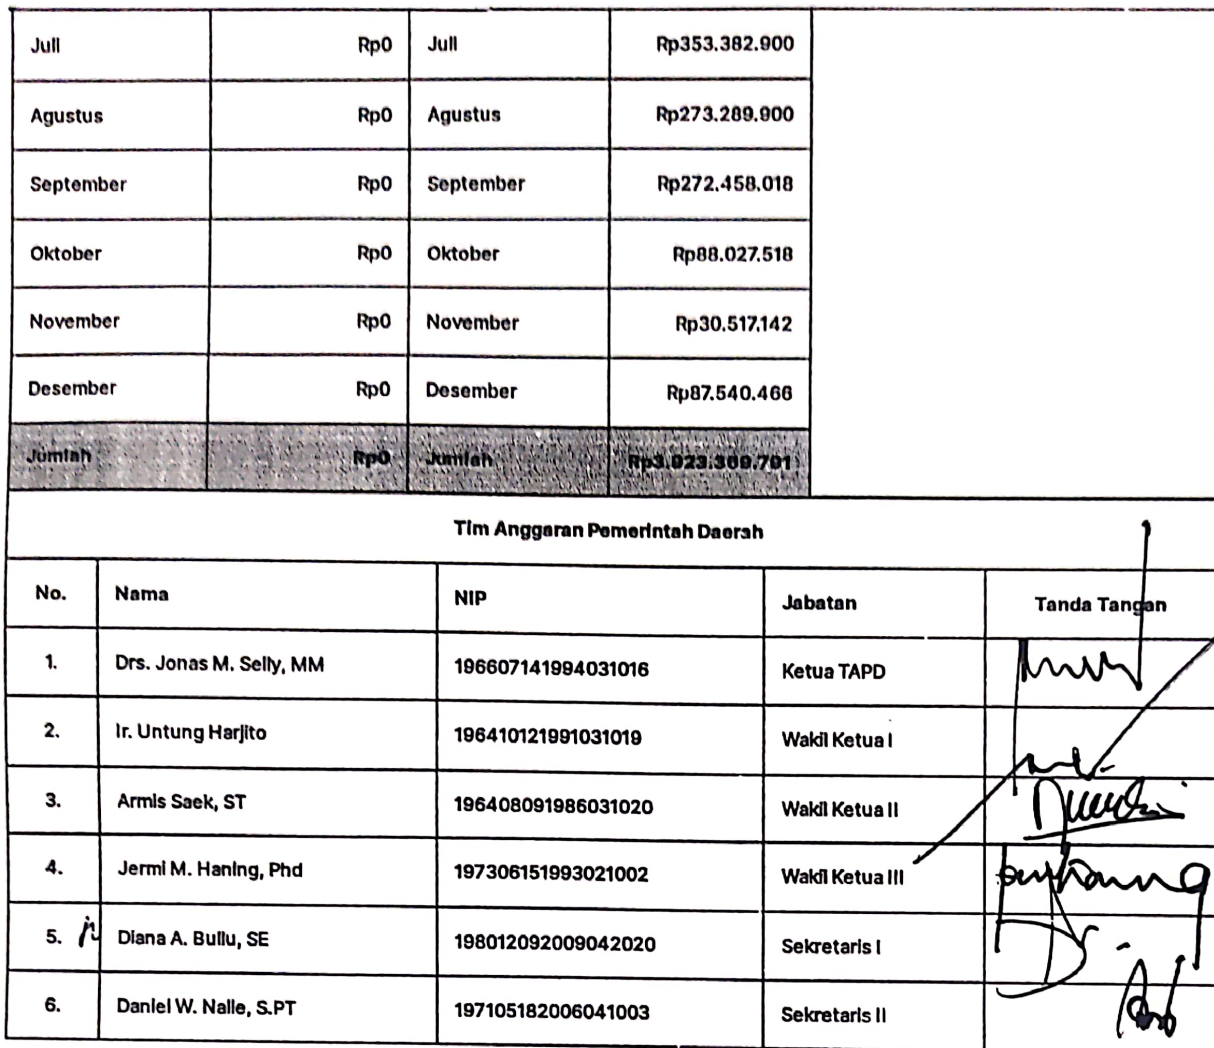 Juli Rp0 Juli Rp353.382.900
Agustus Rp0 Agustus Rp273.289.900
September Rp0 September Rp272.458.018
Oktober Rp0 Oktober Rp88.027.518
November Rp0 November Rp30.517.142
Desember Rp0 Desember Rp87.540.466
Jumlah Rp0 Jumlah
Tim Anggaran Pemerintah Daerah
No. Nama NIP Jabatan Tanda Tangan
1. Drs. Jonas M. Selly, MM 196607141994031016 Ketua TAPD
2. Ir. Untung Harjito 196410121991031019 Wakil Ketua I
3. Armis Saek, ST 196408091986031020 Wakil Ketua II
4. Jermi M. Haning, Phd 197306151993021002 Wakil Ketua III
5. Diana A. Bullu, SE 198012092009042020 Sekretaris I
6. Daniel W. Nalle, S.PT 197105182006041003 Sekretaris II